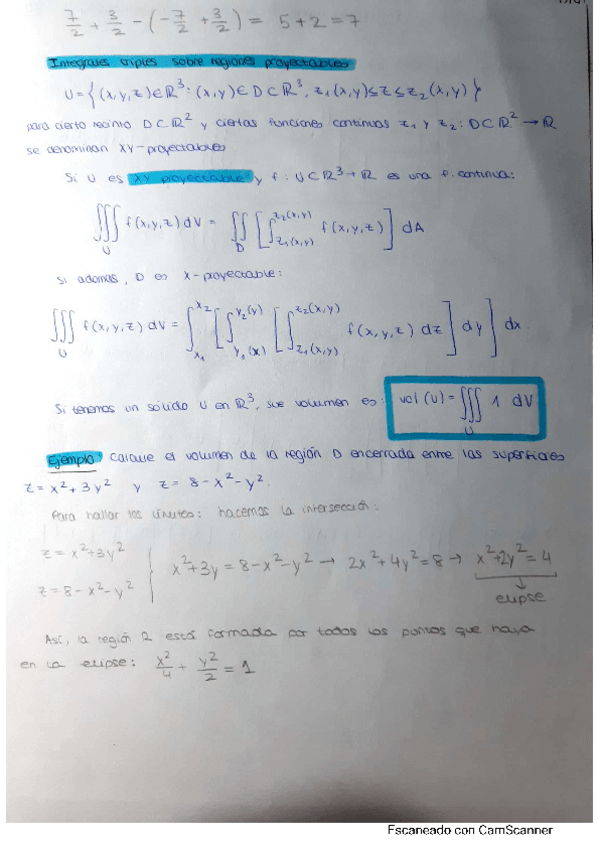 7/2 + 3/2 - (-7/2 + 3/2) = 5+2 = 7
Integrales triples sobre regiones proyectables
U = {(x,y,z) ∈ ℝ³: (x,y) ∈ D ⊂ ℝ³, z₁(x,y) ≤ z ≤ z₂(x,y)}
para cierto recinto D ⊂ ℝ² y ciertas funciones continuas z₁ y z₂: D ⊂ ℝ² → ℝ
se denominan XY-proyectables
Si U es XY proyectable y f: U ⊂ ℝ³ → ℝ es una f. continua:
∭_U f(x,y,z) dV = ∬_D [∫_{z₁(x,y)}^{z₂(x,y)} f(x,y,z)] dA
Si además, D es X-proyectable:
∭_U f(x,y,z) dV = ∫_{x₁}^{x₂} [∫_{y₁(x)}^{y₂(y)} [∫_{z₁(x,y)}^{z₂(x,y)} f(x,y,z) dz] dy] dx
Si tenemos un sólido U en ℝ³, sue volumen es: vol (U) = ∭_U 1 dV
Ejemplo: calcule el volumen de la región D encerrada entre las superficies
z = x² + 3y² y z = 8 - x² - y².
Para hallar los límites: hacemos la intersección:
z = x² + 3y²
z = 8 - x² - y²
} x² + 3y = 8 - x² - y² → 2x² + 4y² = 8 → x² + 2y² = 4
↓
elipse
Así, la región 2 está formada por todos los puntos que haya
en la elipse: x²/4 + y²/2 = 1
Escaneado con CamScanner